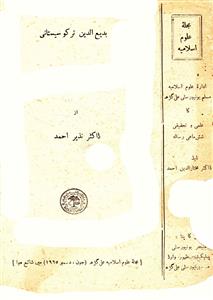 بدیع الدین ترکو سیستانی
از
ڈاکٹر نذیر احمد
[ مجلۂ علوم اسلامیہ علی گڑھ (جون، دسمبر ۱۹۶۵) میں شائع ہوا ]
مجلۂ
علوم
اسلامیہ
ادارۂ علوم اسلامیہ
مسلم یونیورسٹی علی گڑھ
کا
علمی و تحقیقی
شش ماہی رسالہ
ڈاکٹر مختارالدین احمد